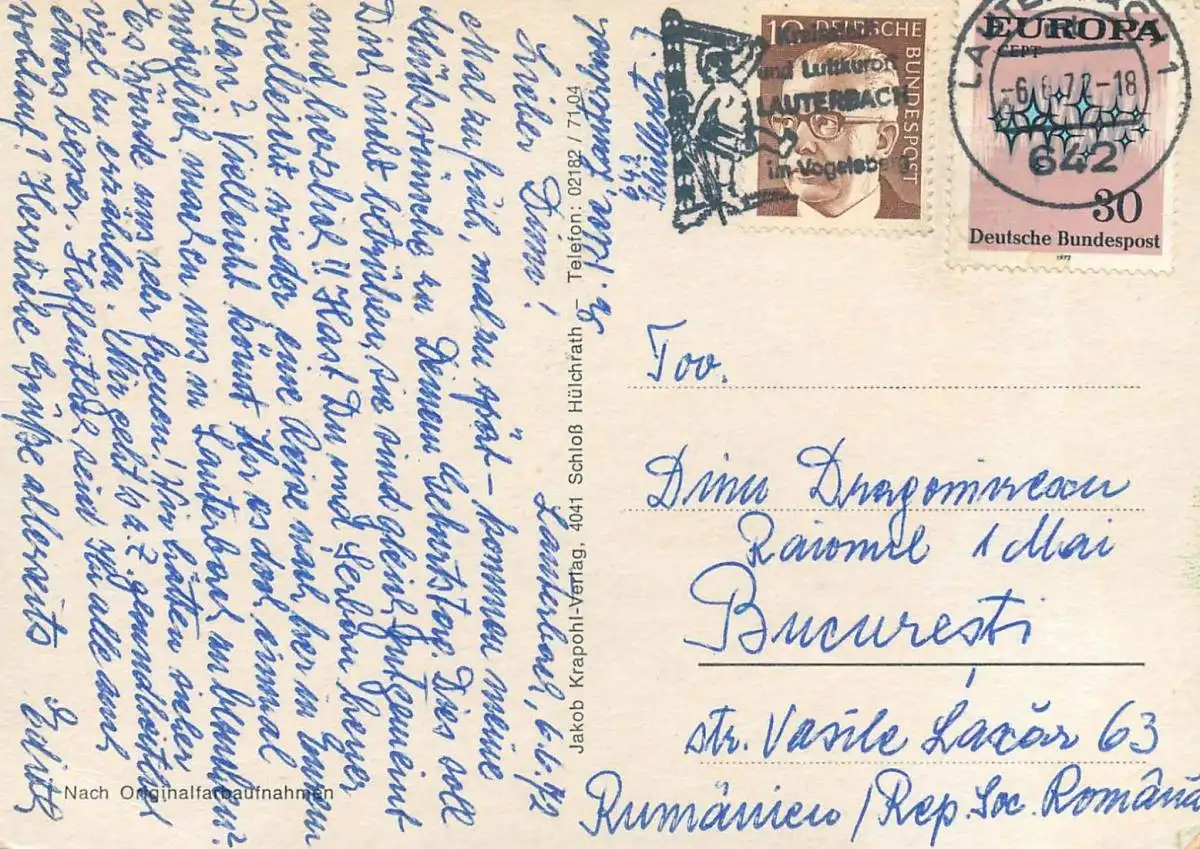 Lauterbach, 6.6.72
Lieber Dinu!
Mal zu früh, mal zu spät – kommen meine
Glückwünsche zu Deinem Geburtstag. Dies soll
Dich nicht betrüben, sie sind gleich gutgemeint
und herzlich!! Hast Du und Serban heuer
vielleicht wieder eine Reise nach hier in Eurem
Plan? Vielleicht könnt Ihr es doch einmal
möglich machen uns in Lauterbach zu besuchen?
Es würde uns sehr freuen! Wir hätten sicher
viel zu erzählen. Mir geht's z. Z. gesundheitlich
etwas besser. Hoffentlich seid Ihr alle auch
wohlauf? Herzliche Grüße allerseits Edith
Nach Originalfarbaufnahmen
Jakob Krapohl-Verlag, 4041 Schloß Hülchrath – Telefon: 02182 / 7104
10 DEUTSCHE BUNDESPOST
und Luftkurort
LAUTERBACH
im Vogelsberg
LAUTERBACH 1
-6.6.72-18
642
EUROPA
CEPT
30
Deutsche Bundespost
1972
Tov.
Dinu Dragomirescu
Raionul 1 Mai
Bucureşti
str. Vasile Lazăr 63
Rumänien / Rep. Soc. România